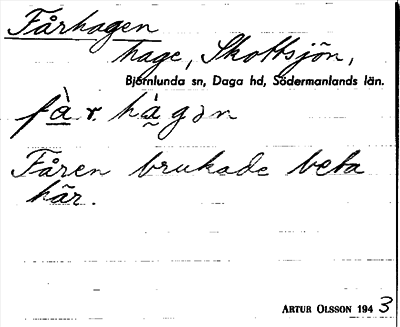 Fårhagen
hage, Skottsjön,
Björnlunda sn, Daga hd, Södermanlands län.
få̀r hàgən
Fåren brukade beta
här.
ARTUR OLSSON 1943